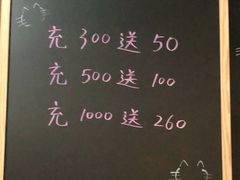 充 300 送 50
充 500 送 100
充 1000 送 260